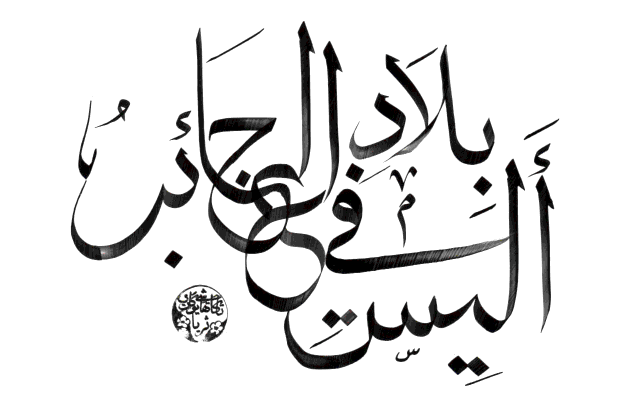 أليس في بلاد العجائب